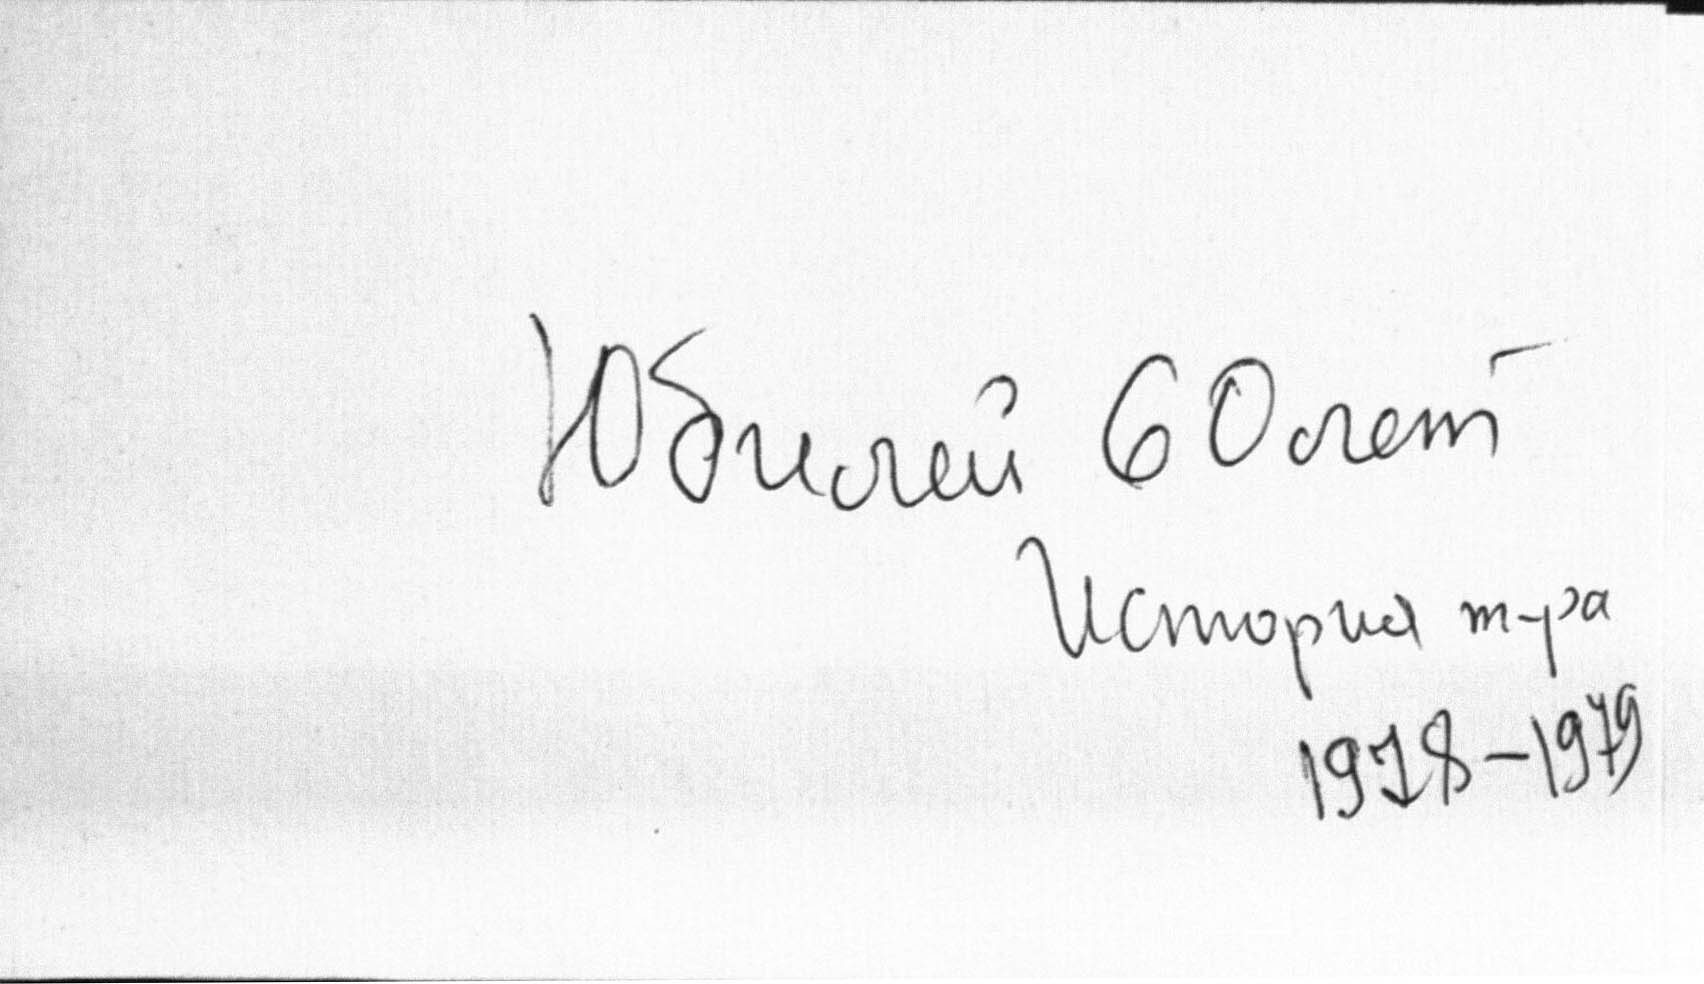 Юбилей 60 лет
История т-ра
1978-1979